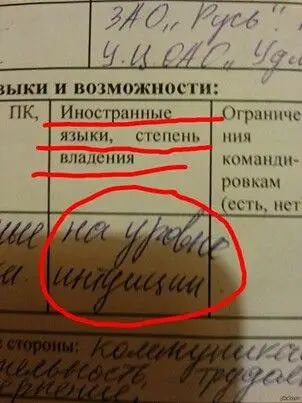 ЗАО „Русь"
У.Ц.ОАС „Удм
выки и возможности:
ПК,
Иностранные
языки, степень
владения
Ограниче
ния
команди-
ровкам
(есть, нет
ные
на уровне
интуиции
е стороны: коммуника
тельность, трудол